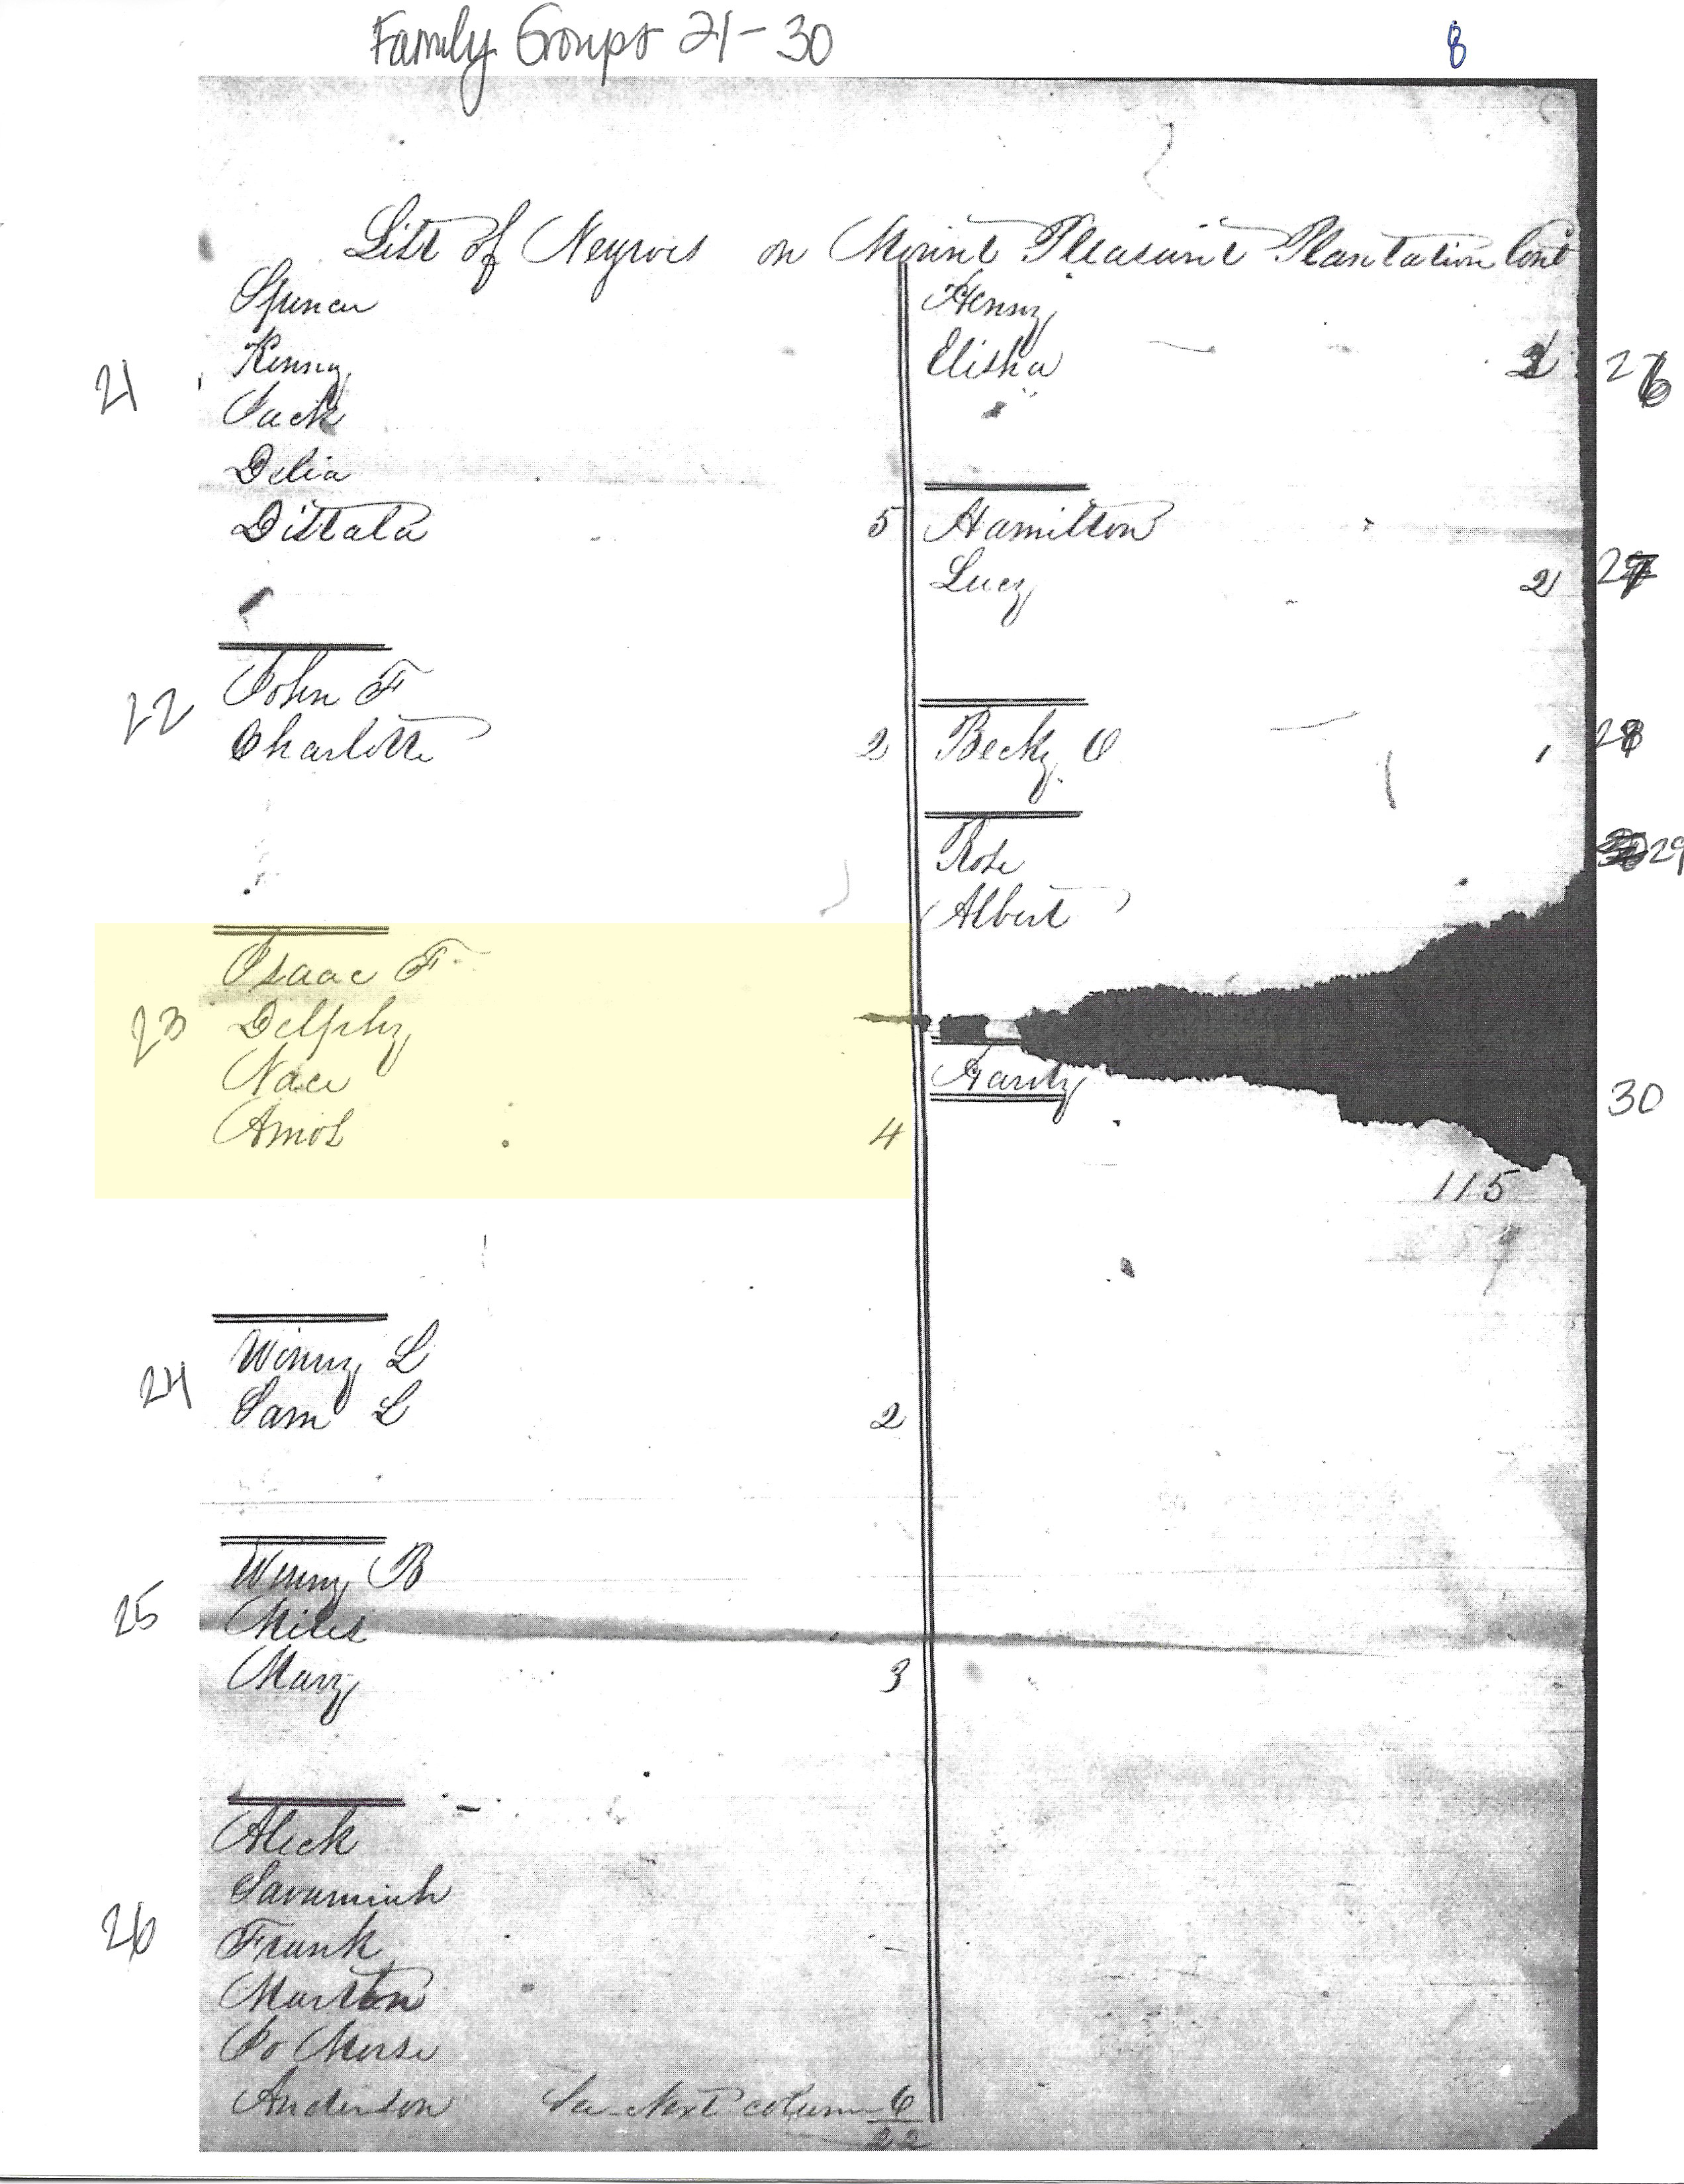 Family Groups 21-30
8
List of Negroes on Mount Pleasant Plantation Cont
Spencer
21
Kenny
Jack
Delia
Distata 5
22
John F
Charlotte 2
23
Isaac F
Delphy
Nace
Amos 4
24
Winny L
Sam L 2
25
Winny B
Miles
Mary 3
26
Aleck
Savanniah
Frank
Martin
Jo Morse
Anderson See Next column 6
22
Henny
Elisha 2 26
Hamilton
Lucy 2 27
Becky O 1 28
Rose 29
Albert
Hardy 30
115